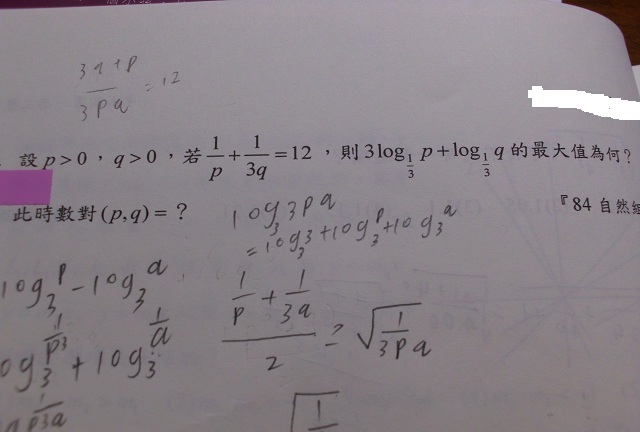 3q+p
―― =12
3pq
設 p>0，q>0，若 1/p + 1/3q =12，則 3log_{1/3} p+log_{1/3} q 的最大值為何？
此時數對(p,q)=？
『84 自然組
log_3 3pq
=log_3 3+log_3 p+log_3 q
log_3 p - log_3 q
(1/p + 1/3q)/2 ≥ √(1/3pq)
log_3 1/p3 + log_3 1/q
1/p3q
√1